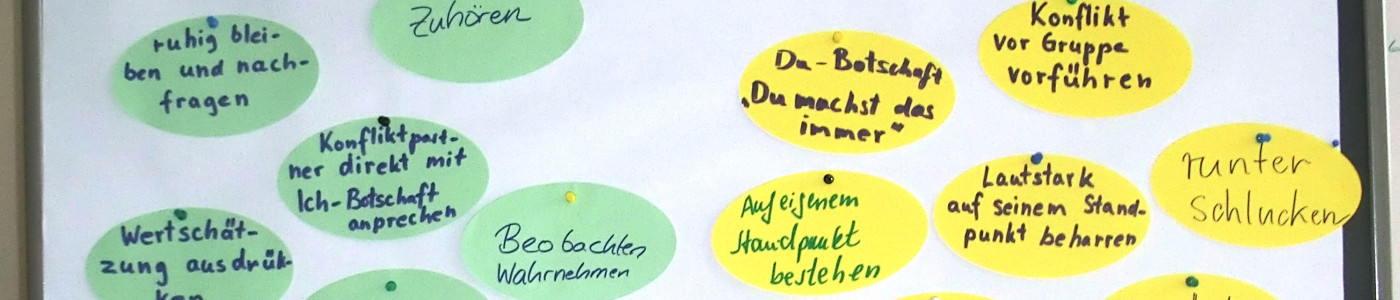 ruhig blei-
ben und nach-
fragen
Zuhören
Konfliktpart-
ner direkt mit
Ich-Botschaft
anprechen
Wertschät-
zung ausdrük-
ken
Beobachten
Wahrnehmen
Du-Botschaft
„Du machst das
immer"
Konflikt
vor Gruppe
vorführen
Auf eigenem
Standpunkt
bestehen
Lautstark
auf seinem Stand-
punkt beharren
runter
Schlucken